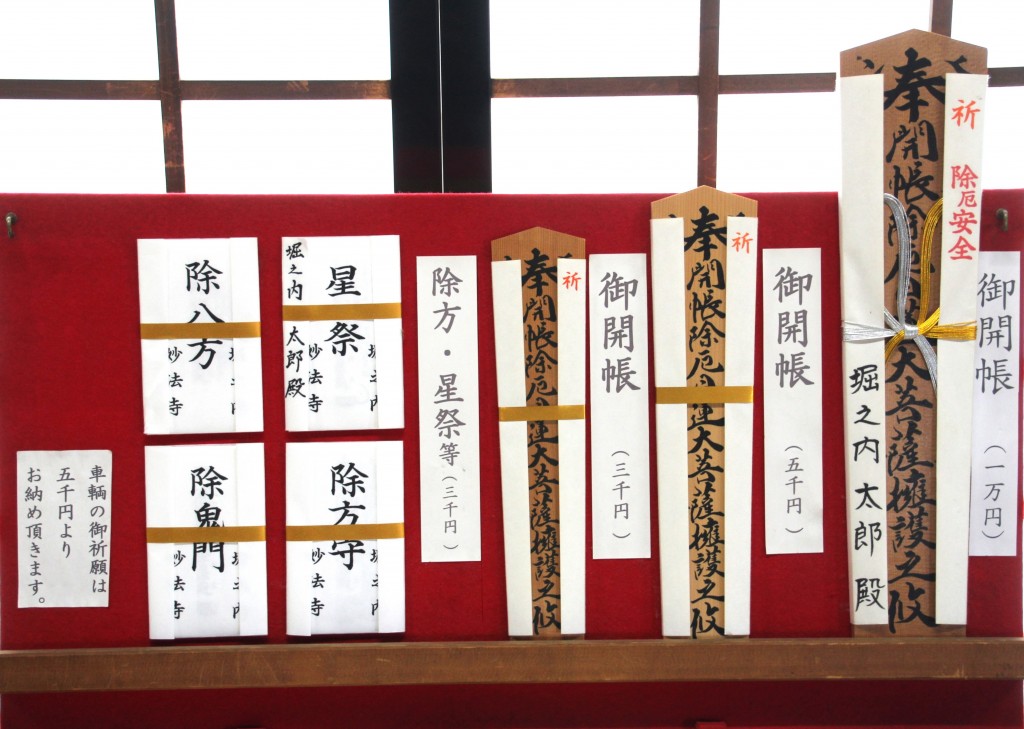 車輌の御祈願は
五千円より
お納め頂きます。
除八方
堀之内
妙法寺
堀之内
太郎殿
星祭
堀之内
妙法寺
除鬼門
堀之内
妙法寺
除方守
堀之内
妙法寺
除方・星祭等(三千円)
奉開帳除厄日蓮大菩薩擁護之攸
祈
御開帳
(三千円)
奉開帳除厄日蓮大菩薩擁護之攸
祈
御開帳
(五千円)
奉開帳除厄大菩薩擁護之攸
祈
除厄安全
堀之内太郎殿
御開帳
(一万円)